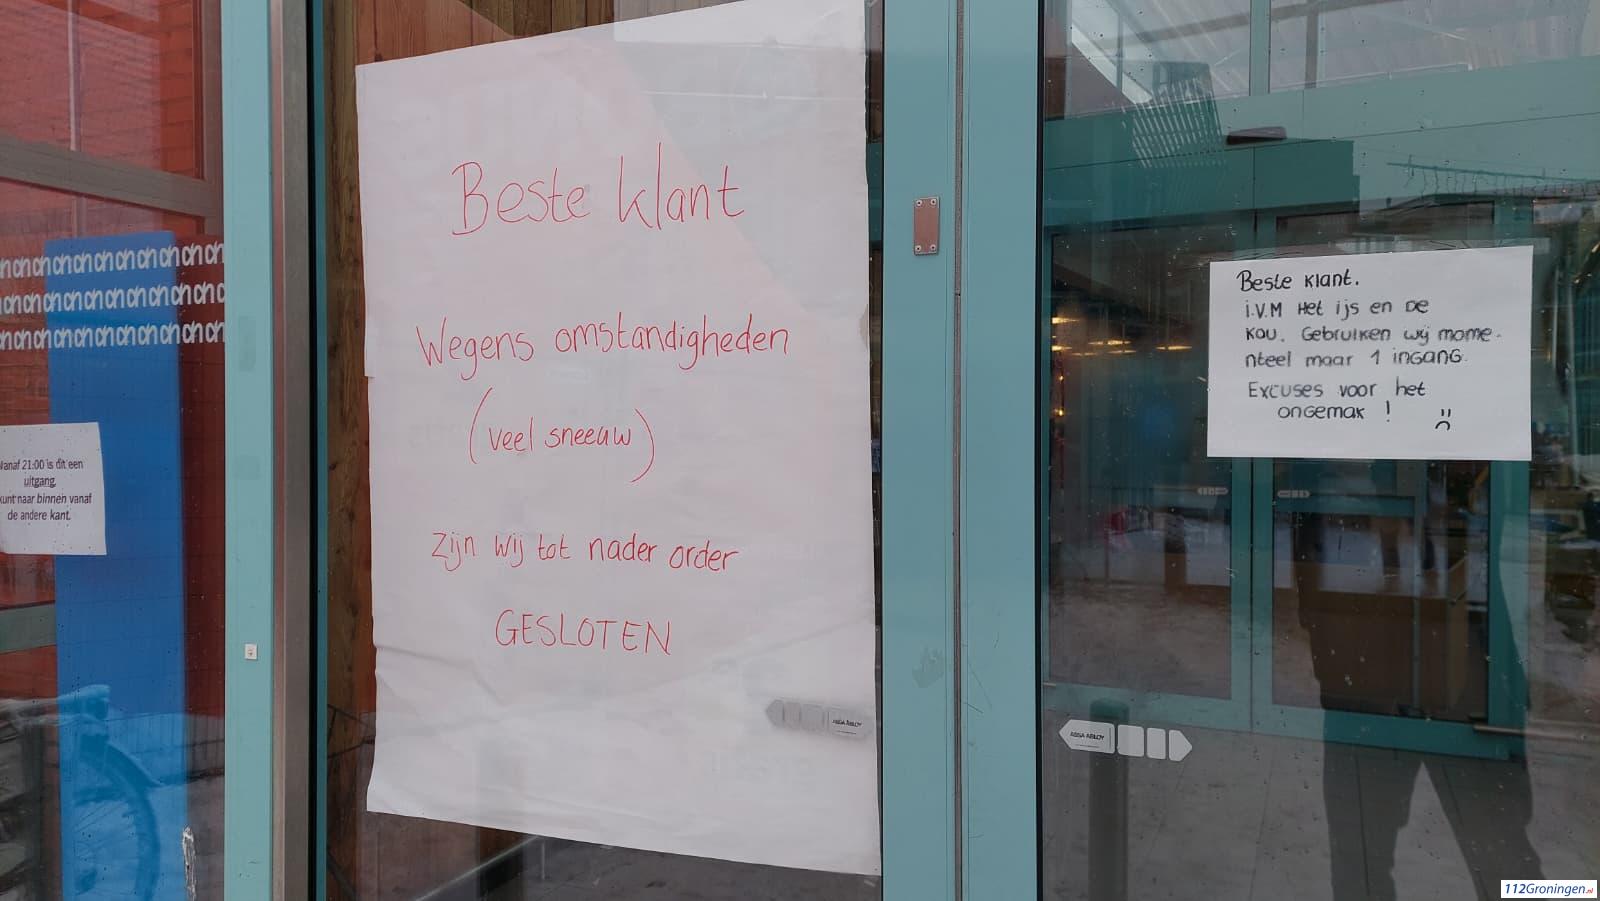 Beste klant
Wegens omstandigheden
(veel sneeuw)
Zijn wij tot nader order
GESLOTEN
Beste klant.
i.v.M Het ijs en De
kou. Gebruiken wij mome-
nteel maar 1 ingang.
Excuses voor het
ongemak !
Vanaf 21:00 is dit een
uitgang.
kunt naar binnen vanaf
de andere kant.
ASSA ABLOY
ASSA ABLOY
112Groningen.nl